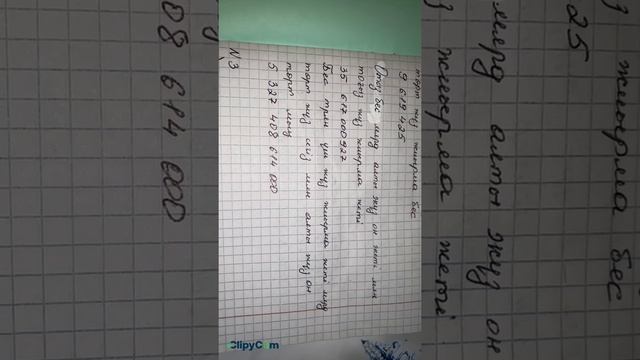 төрт жүз жиырма бес
9 619 425
Отыз бес млрд алты жүз он жеті млн
тоғыз жүз жиырма жеті
35 617 000 927
Бес трлн үш жүз жиырма жеті млрд
төрт жүз сегіз млн алты жүз он
төрт мың
5 327 408 614 000
N 3
ClipyCom